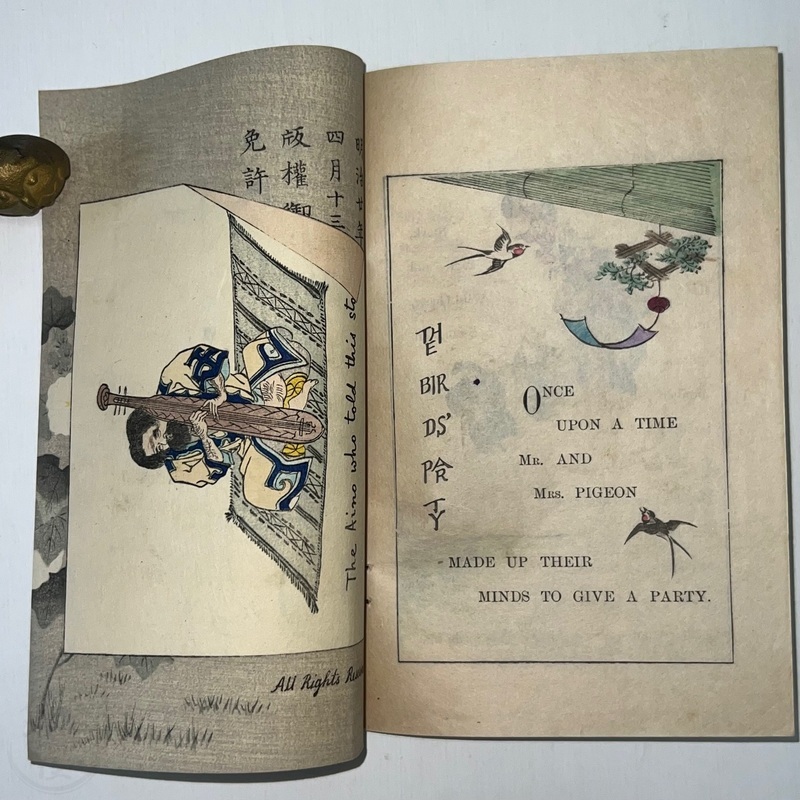 明治
四月十三
版權御
免許
The Aino who told this sto
All Rights Rese
THE
BIR
DS'
PAR
TY
ONCE
UPON A TIME
MR. AND
MRS. PIGEON
MADE UP THEIR
MINDS TO GIVE A PARTY.